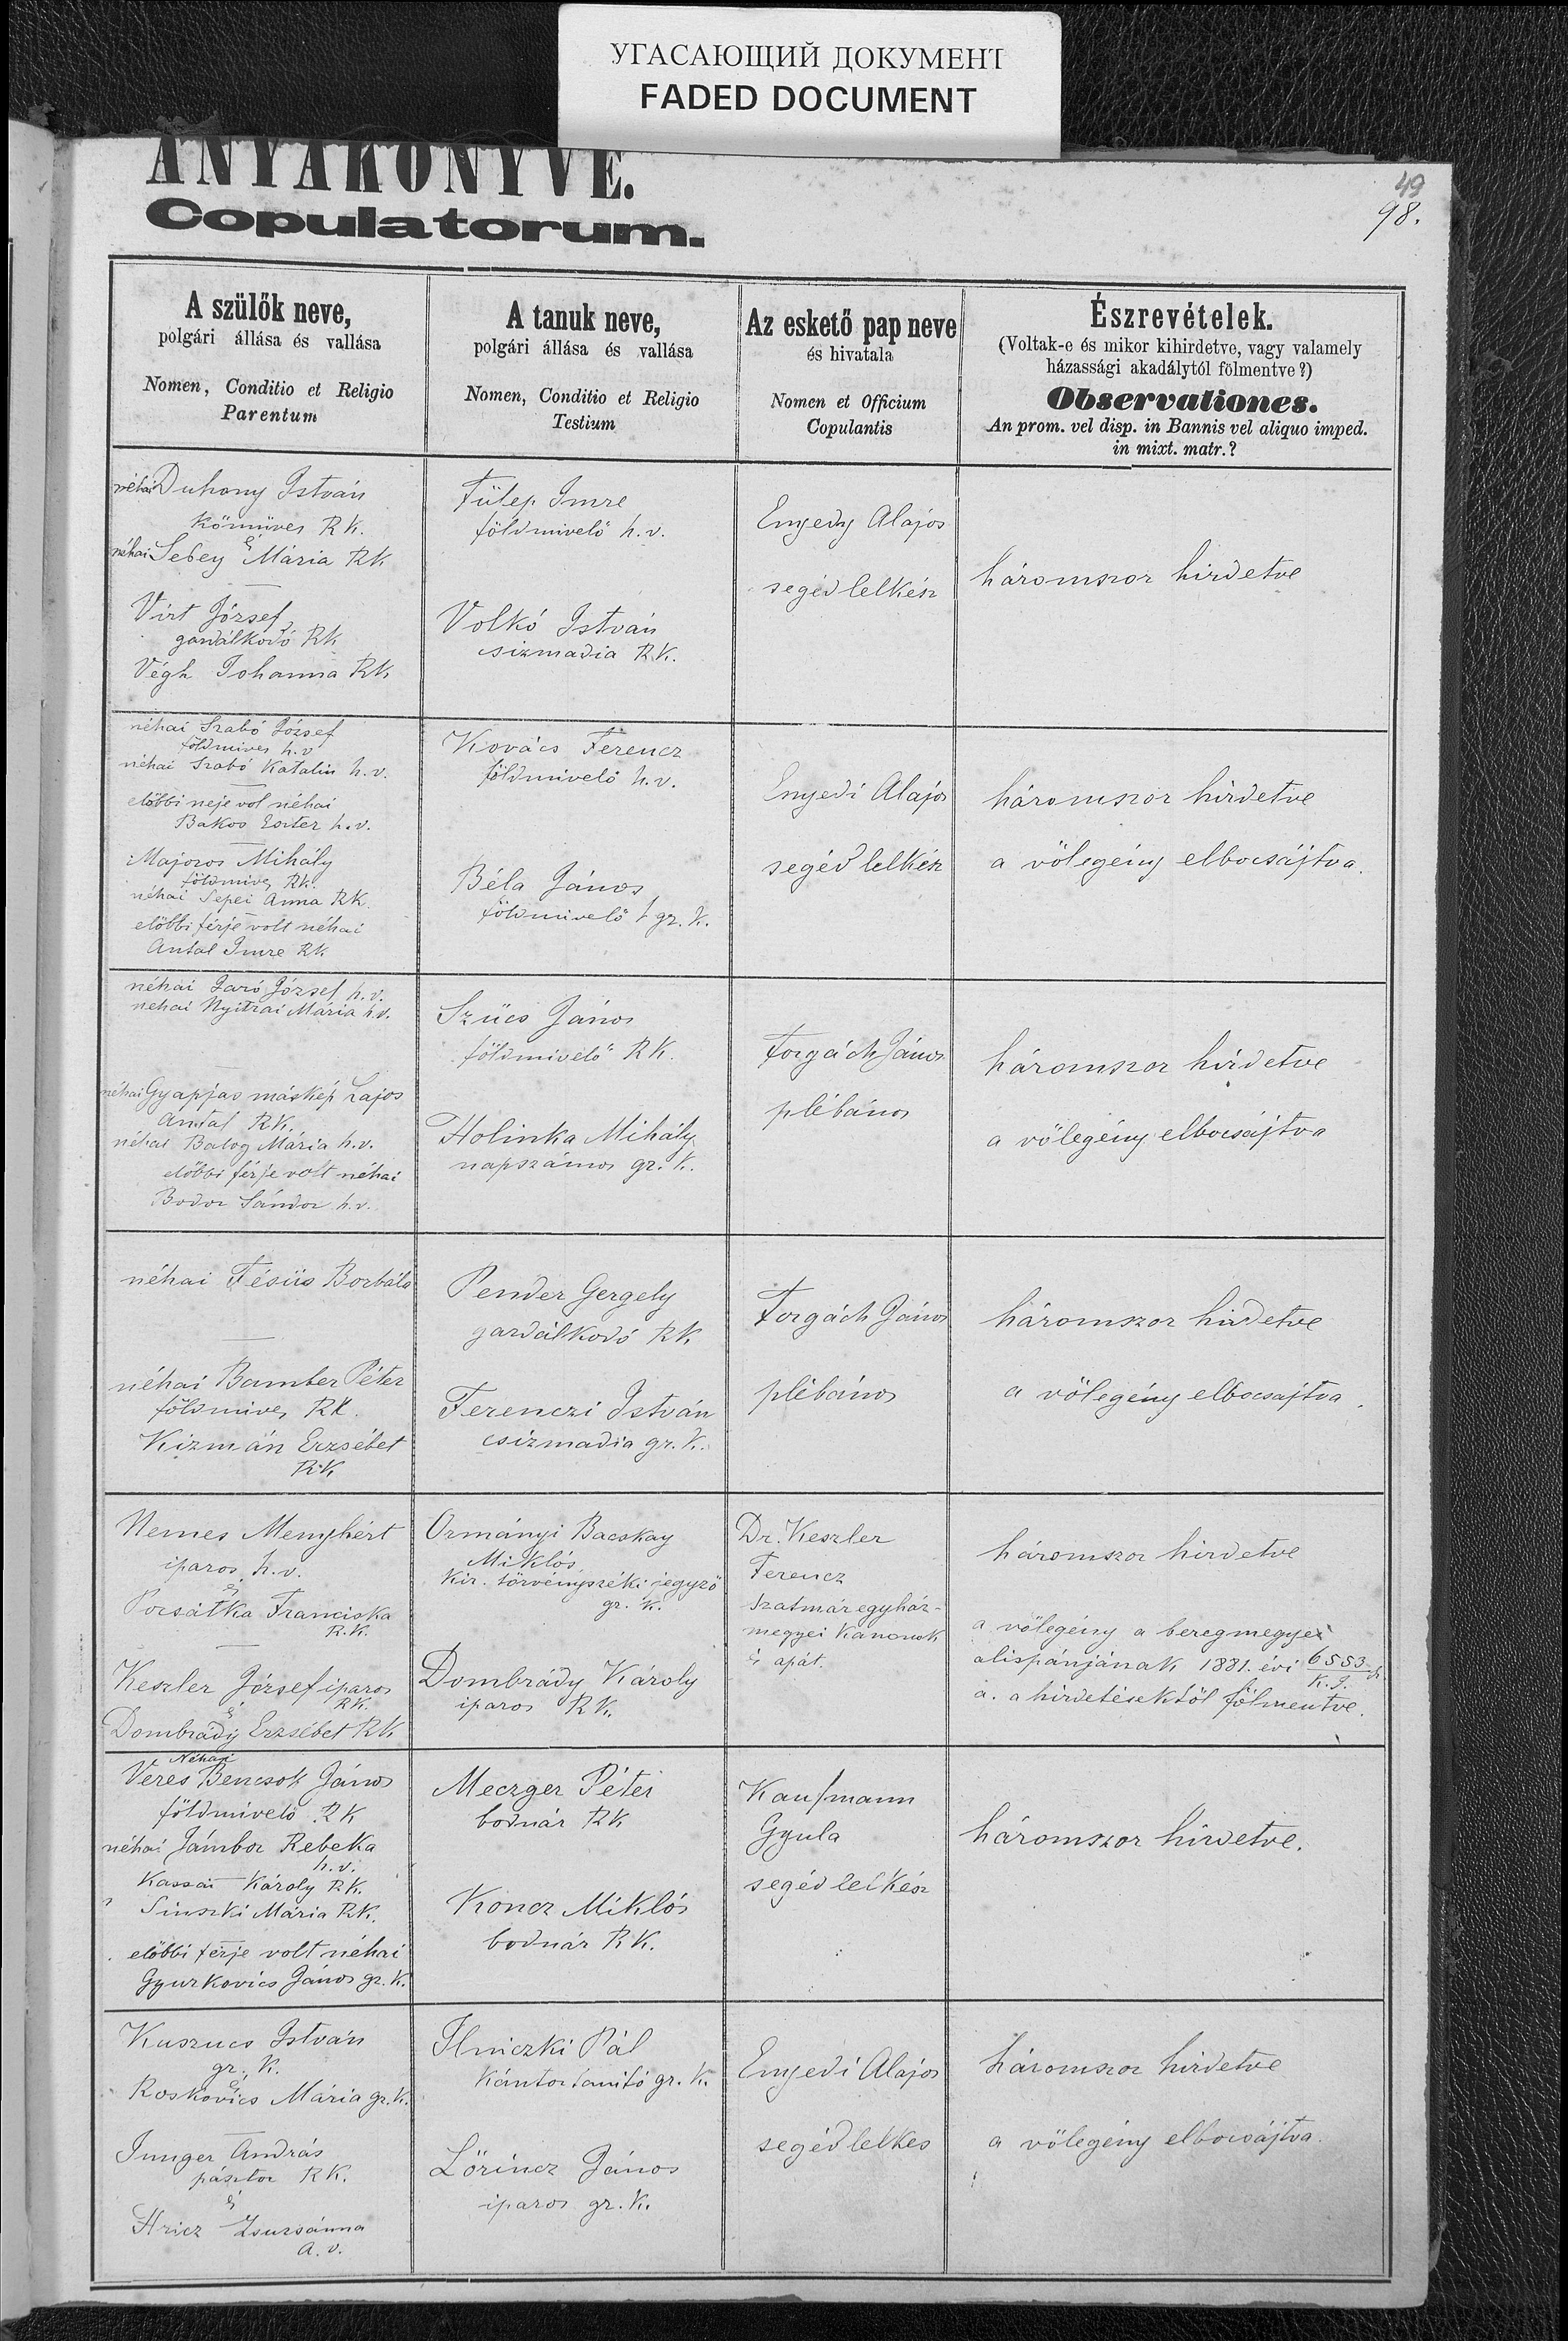 УГАСАЮЩИЙ ДОКУМЕНТ
FADED DOCUMENT
ANYAKÖNYVE.
Copulatorum.
49
98.
A szülők neve,
polgári állása és vallása
Nomen, Conditio et Religio
Parentum
A tanuk neve,
polgári állása és vallása
Nomen, Conditio et Religio
Testium
Az eskető pap neve
és hivatala
Nomen et Officium
Copulantis
Észrevételek.
(Voltak-e és mikor kihirdetve, vagy valamely
házassági akadálytól fölmentve?)
Observationes.
An prom. vel disp. in Bannis vel aliquo imped.
in mixt. matr.?
néhai Duhony István
kőműves RK.
és
néhai Sebey Mária RK
Virt József
gazdálkodó RK
Végh Johanna RK
Fülep Imre
földmivelő h.v.
Volkó István
csizmadia RK.
Enyedy Alajos
segédlelkész
háromszor hirdetve
néhai Szabó József
földmives h.v
néhai Szabó Katalin h.v.
előbbi neje vol néhai
Bakos Eszter h.v.
Majoros Mihály
földmives RK.
néhai Sepei Anna RK.
előbbi férje volt néhai
Antal Imre RK
Kovács Ferencz
földmivelő h.v.
Béla János
földmivelő gr.k.
Enyedi Alajos
segédlelkész
háromszor hirdetve
a völegény elbocsájtva.
néhai Jaró József h.v.
néhai Nyitrai Mária h.v.
néhai Gyapjas máskép Lajos
Antal RK.
néhai Balog Mária h.v.
előbbi férje volt néhai
Bodor Sándor h.v.
Szücs János
földmivelő RK.
Holinka Mihály
napszámos gr.k.
Forgách János
plébános
háromszor hirdetve
a völegény elbocsájtva
néhai Fésüs Borbála
néhai Bamber Péter
földmives RK.
Kizmán Erzsébet
RK
Pender Gergely
gazdálkodó RK
Ferenczi István
csizmadia gr.k.
Forgách János
plébános
háromszor hirdetve
a völegény elbocsajtva.
Nemes Menyhért
iparos h.v.
és
Pocsátka Franciska
R.K.
Keszler József iparos
RK.
és
Dombrády Erzsébet RK
Ormányi Bacskay
Miklós
kir. törvényszéki jegyző
gr. k.
Dombrády Károly
iparos RK.
Dr. Keszler
Ferencz
szatmáregyház-
megyei kanonok
és apát.
háromszor hirdetve
a völegény a beregmegyei
alispánjának 1881. évi 6553
K.J.
a. a hirdetésektől fölmentve.
Néhai
Veres Bencsok János
földmivelő RK
néhai Jámbor Rebeka
h.v.
Kassai Károly RK.
Sinszki Mária RK.
előbbi férje volt néhai
Gyurkovics János gr.k.
Meczger Péter
bodnár RK
Koncz Miklós
bodnár RK.
Kaufmann
Gyula
segédlelkész
háromszor hirdetve.
Kuszucs István
gr. k.
és
Roskovics Mária gr.k.
Junger András
pásztor RK.
és
Hricz Zsuzsánna
a.v.
Ilniczki Pál
kántortanító gr.k.
Lőrincz János
iparos gr.k.
Enyedi Alajos
segédlelkés
háromszor hirdetve
a völegény elbocsájtva.